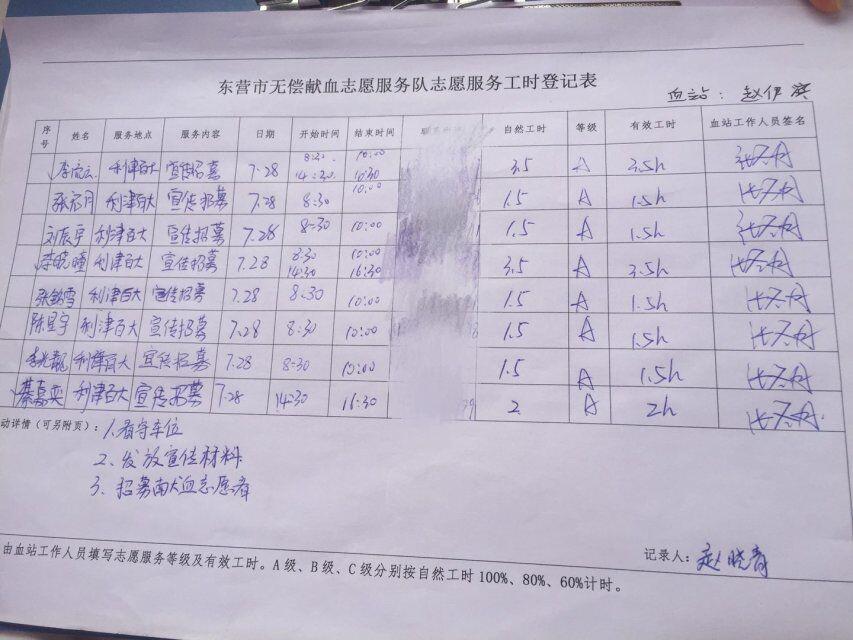 东营市无偿献血志愿服务队志愿服务工时登记表
血站：赵伊滨
序号 姓名 服务地点 服务内容 日期 开始时间 结束时间 自然工时 等级 有效工时 血站工作人员签名
利津百大 宣传招募 7.28 8:30 14:30 10:00 3.5 A 3.5h
利津百大 宣传招募 7.28 8:30 10:00 1.5 A 1.5h
刘辰宇 利津百大 宣传招募 7.28 8:30 10:00 1.5 A 1.5h
李晓瞳 利津百大 宣传招募 7.28 8:30 14:30 10:00 16:30 3.5 A 3.5h
利津百大 宣传招募 7.28 8:30 10:00 1.5 A 1.5h
陈昱宇 利津百大 宣传招募 7.28 8:30 10:00 1.5 A 1.5h
李兆靓 利津百大 宣传招募 7.28 8:30 10:00 1.5 A 1.5h
蔡嘉奕 利津百大 宣传招募 7.28 14:30 16:30 2 A 2h
动详情（可另附页）：1.看守车位
2、发放宣传材料
3、招募献血志愿者
记录人：赵晓青
由血站工作人员填写志愿服务等级及有效工时。A级、B级、C级分别按自然工时100%、80%、60%计时。